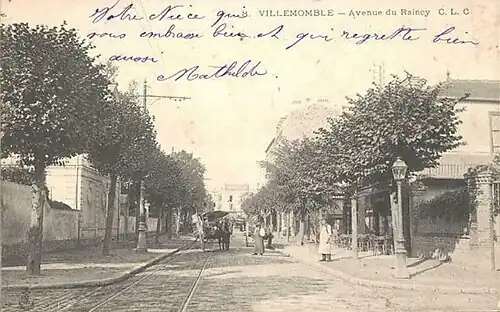 VILLEMOMBLE — Avenue du Raincy C. L. C
Votre Nièce qui
vous embrasse bien et qui regrette bien
aussi
Mathilde.